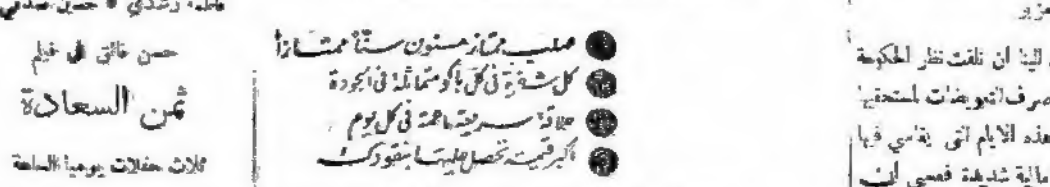 مزيد
الينا ان نلفت نظر الحكومة
صرف التعويضات لمستحقيها
هذه الايام التي يقاسي فيها
مالية شديدة فعسى أن
صلب ممتاز مسنون سنّاً ممتازاً
كل شفرة في كل باكو متماثلة في الجودة
حلاقة سريعة ناعمة في كل يوم
أكبر قيمة تحصل عليها بنقودك
فاطمة رشدي * حسين صدقي
حسن فائق في فيلم
ثمن السعادة
ثلاث حفلات يوميا الساعة